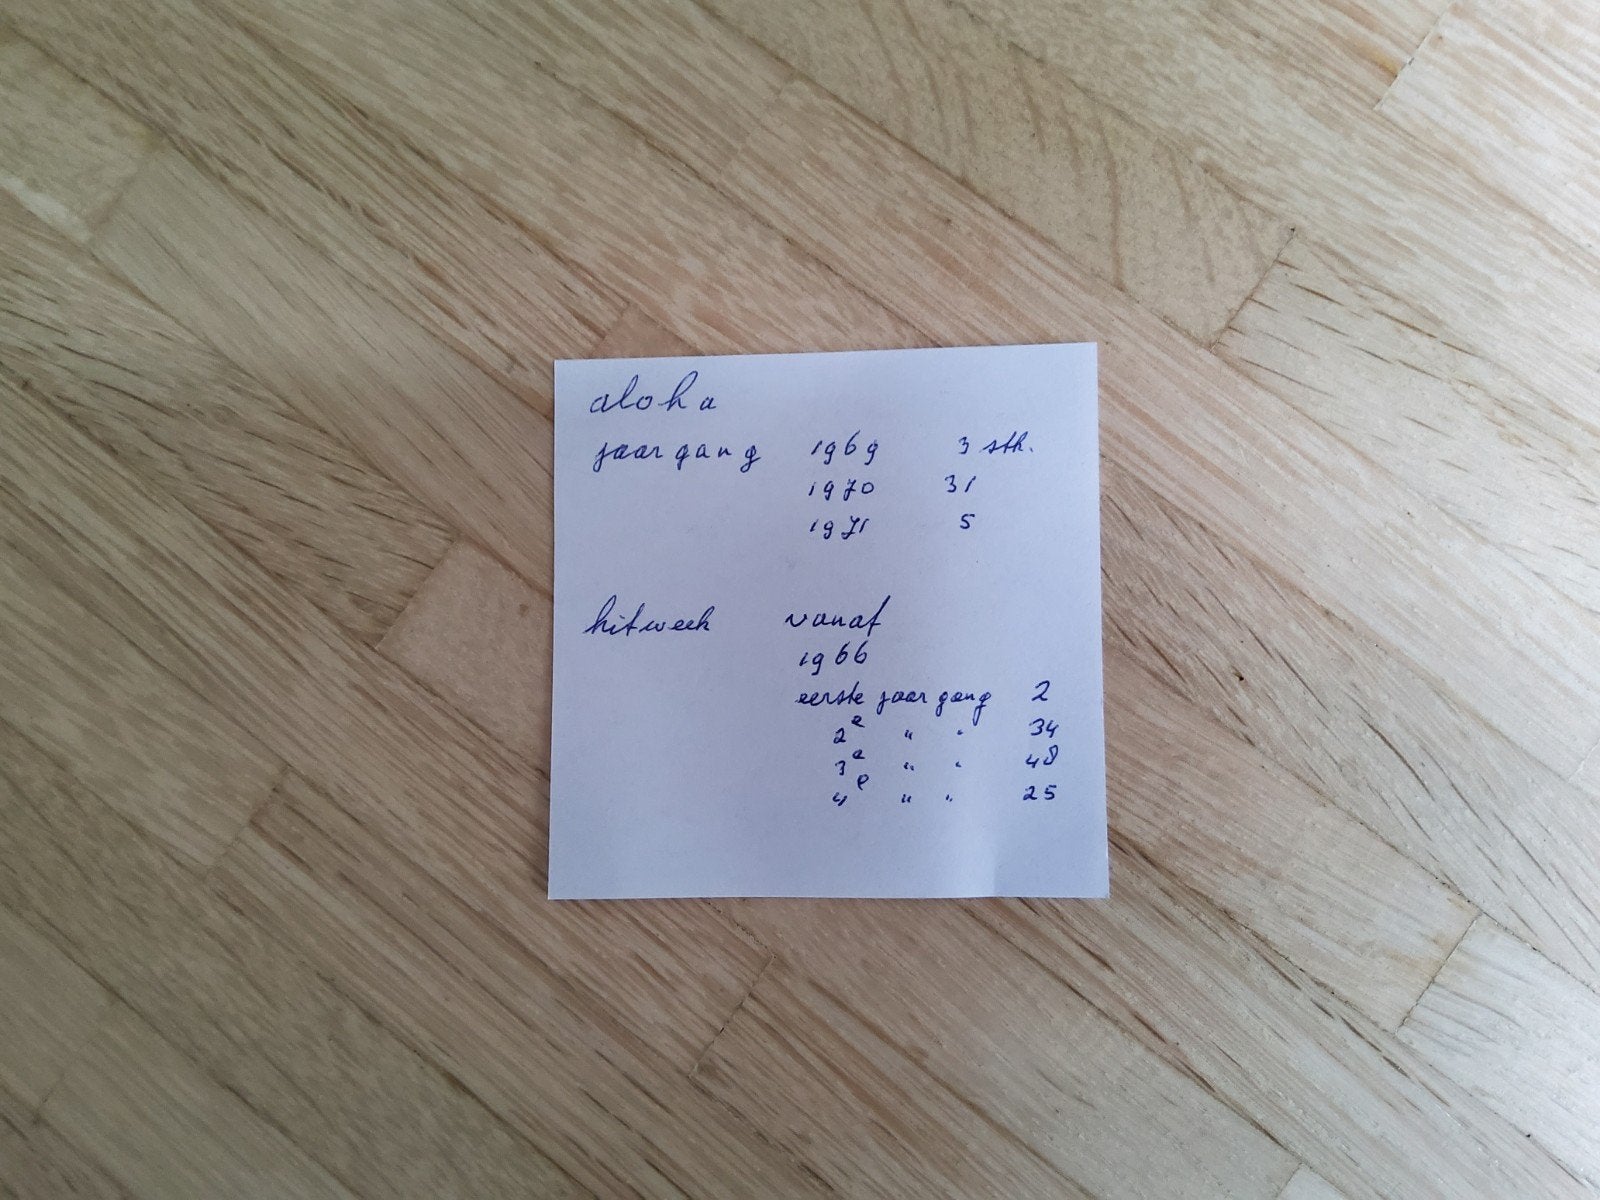 aloha
jaargang 1969 3 stk.
1970 31
1971 5
hitweek vanaf
1966
eerste jaargang 2
2e " " 34
3e " " 48
4e " " 25